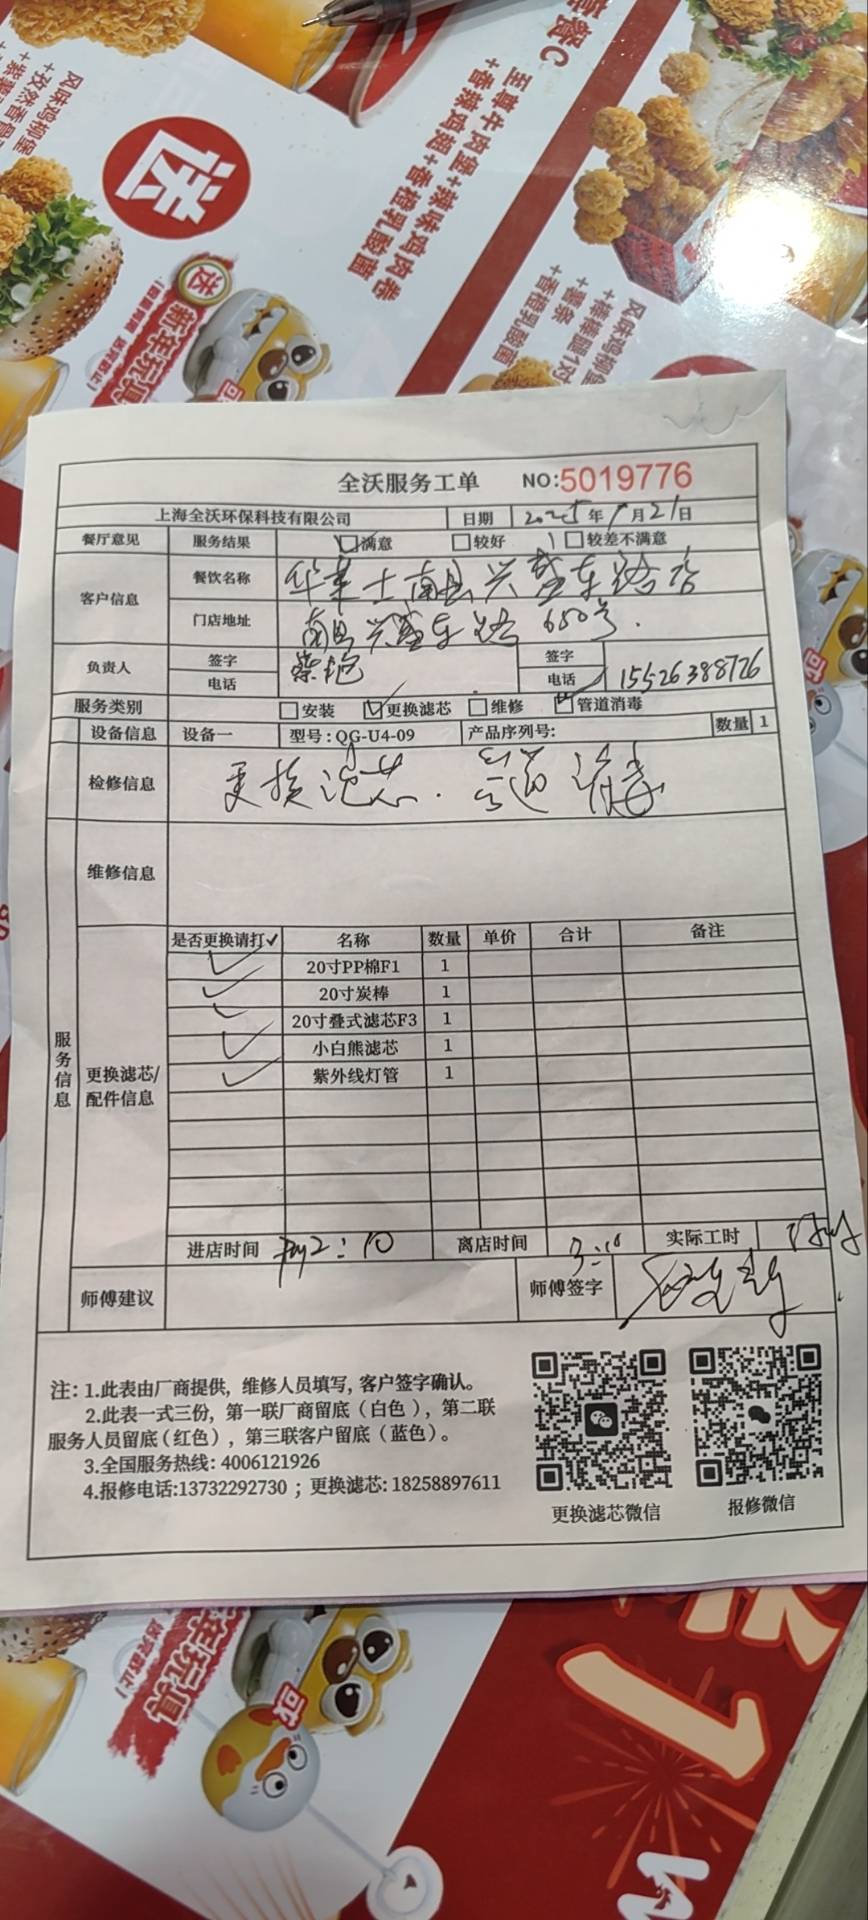 套餐C
至尊牛肉堡+辣味鸡肉卷
+香辣鸡翅+香橙乳酸菌
送
送
新年玩具
风味鸡柳堡
+薯条
+香橙乳酸菌
全沃服务工单 NO:5019776
上海全沃环保科技有限公司 日期 2025年1月21日
餐厅意见 服务结果 满意 较好 较差不满意
客户信息 餐饮名称 华莱士南县兴盛东路店
门店地址 南县兴盛东路650号.
负责人 签字 签字
电话 电话 15526388726
服务类别 安装 ✓更换滤芯 维修 ✓管道消毒
设备信息 设备一 型号:QG-U4-09 产品序列号: 数量 1
检修信息 更换滤芯.管道消毒
维修信息
服务信息
更换滤芯/配件信息
是否更换请打✓ 名称 数量 单价 合计 备注
✓ 20寸PP棉F1 1
✓ 20寸炭棒 1
✓ 20寸叠式滤芯F3 1
✓ 小白熊滤芯 1
✓ 紫外线灯管 1
进店时间 2:10 离店时间 3:10 实际工时
师傅建议 师傅签字
注: 1.此表由厂商提供, 维修人员填写, 客户签字确认。
2.此表一式三份, 第一联厂商留底(白色), 第二联
服务人员留底(红色), 第三联客户留底(蓝色)。
3.全国服务热线: 4006121926
4.报修电话:13732292730 ; 更换滤芯: 18258897611
更换滤芯微信 报修微信
年玩具